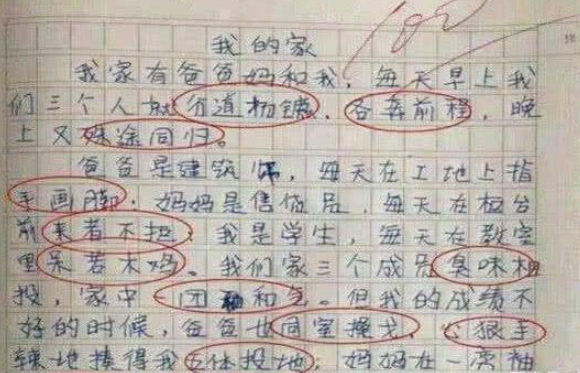 100
我的家
我家有爸爸妈和我，每天早上我
们三个人就分道扬镳，各奔前程，晚
上又殊途同归。
爸爸是建筑师，每天在工地上指
手画脚；妈妈是售货员，每天在柜台
前来者不拒；我是学生，每天在教室
里呆若木鸡。我们家三个成员臭味相
投，家中一团和气。但我的成绩不
好的时候，爸爸也同室操戈，心狠手
辣地揍得我五体投地；妈妈在一旁袖